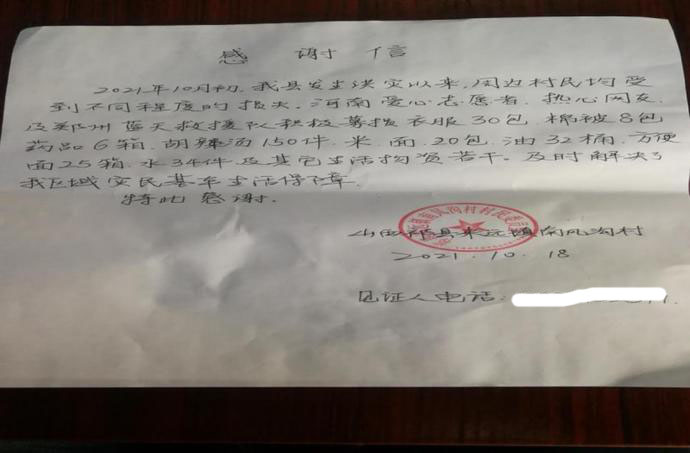 感谢信
2021年10月初,我县发生洪灾以来,周边村民均受
到不同程度的损失。河南爱心志愿者、热心网友
及郑州蓝天救援队积极筹拨衣服30包、棉被8包
药品6箱、胡辣汤150件、米、面、20包、油32桶、方便
面25箱、水34件及其它生活物资若干。及时解决了
我区域灾民基本生活保障
特此感谢。
山西祁县来远镇南风沟村
2021.10.18
见证人电话: